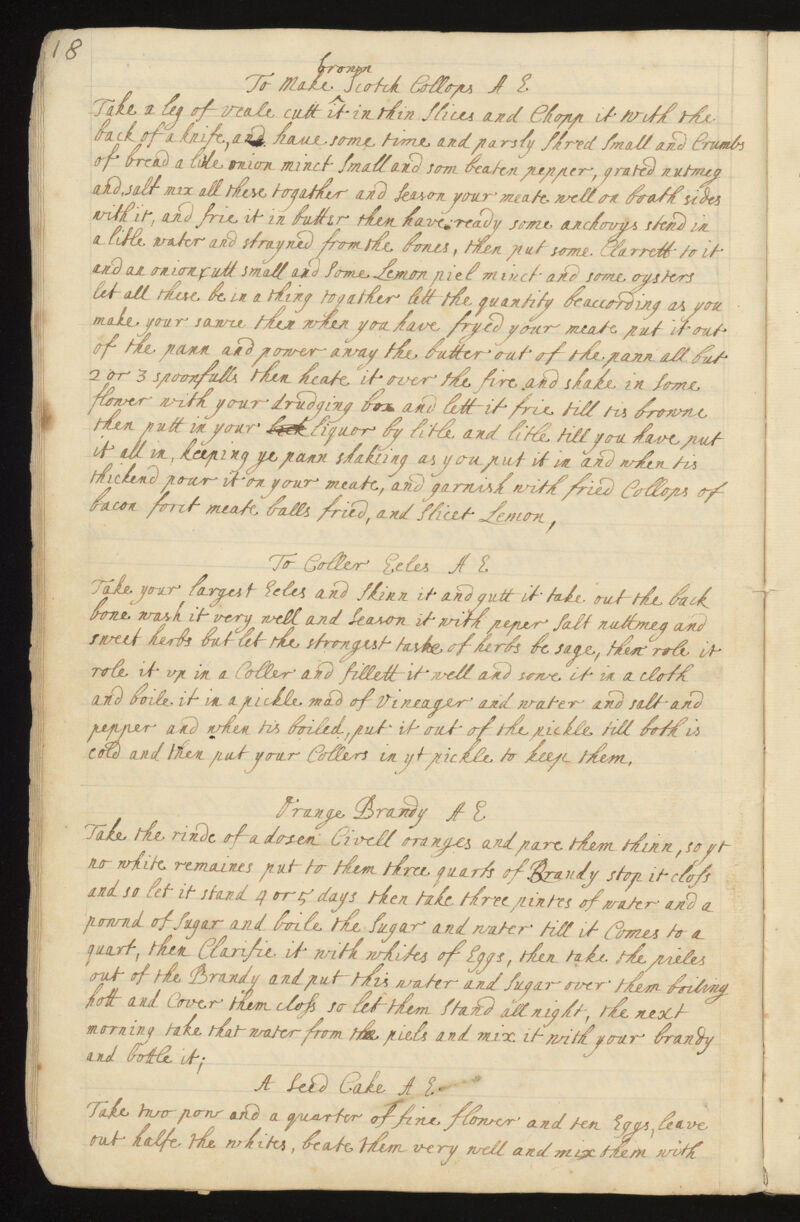 18
brown
To Make ^ Scotch Collops A E
Take a leg of veale cutt it in thin slices and Chopp it with the
back of a knife, and have some time and parsly shred small and Crumbs
of bread a litle onion minct small and som beaten pepper, grated nutmeg
and salt mix all these togather and season your meate well on boath sides
with it, and frie it in butter then have ready some anchovys stend in
a litle water and strayned from the bones, then put some Clarrett to it
and an onion cutt small and some Lemon piel minct and some oysters
let all these be in a thing togather lett the quantity be according as you
make your sawce then when you have fryed your meate put it out
of the pann and power away the butter out of the pann all but
2 or 3 spoonfulls then heate it over the fire and shake in some
flower with your drudging box and lett it frie till tis browne
then putt in your liquor by litle and litle till you have put
it all in, keeping ye pann shakeing as you put it in and when tis
thickend pour it on your meate, and garnish with fried Collops of
bacon forct meate balls fried, and slicet Lemon,
To Coller Eeles A E
Take your largest Eeles and skinn it and gutt it take out the back
bone wash it very well and season it with peper salt nuttmeg and
sweet herbs but let the strongest taste of herbs be sage, then role it
role it vp in a Coller and fillett it well and sowe it in a cloth
and boile it in a pickle mad of Vineager and water and salt and
pepper and when tis boiled, put it out of the pickle till both is
cold and then put your Collers in yt pickle to keep them.
Orange Brandy A E
Take the rinde of a dosen Civell oranges and pare them thinn, so yt
no white remaines put to them three quarts of Brandy stop it closs
and so let it stand 4 or 5 days then take three pintes of water and a
pownd of sugar and boile the sugar and water till it Comes to a
quart, then Clarifie it with whites of Eggs, then take the pieles
out of the Brandy and put this water and sugar over them boiling
hott and Cover them closs so let them stand all night, the next
morning take that water from the piels and mix it with your brandy
and bottle it;
A Seed Cake A E
Take two pow and a quarter of fine flower and ten Eggs, leave
out halfe the whites, beate them very well and mix them with